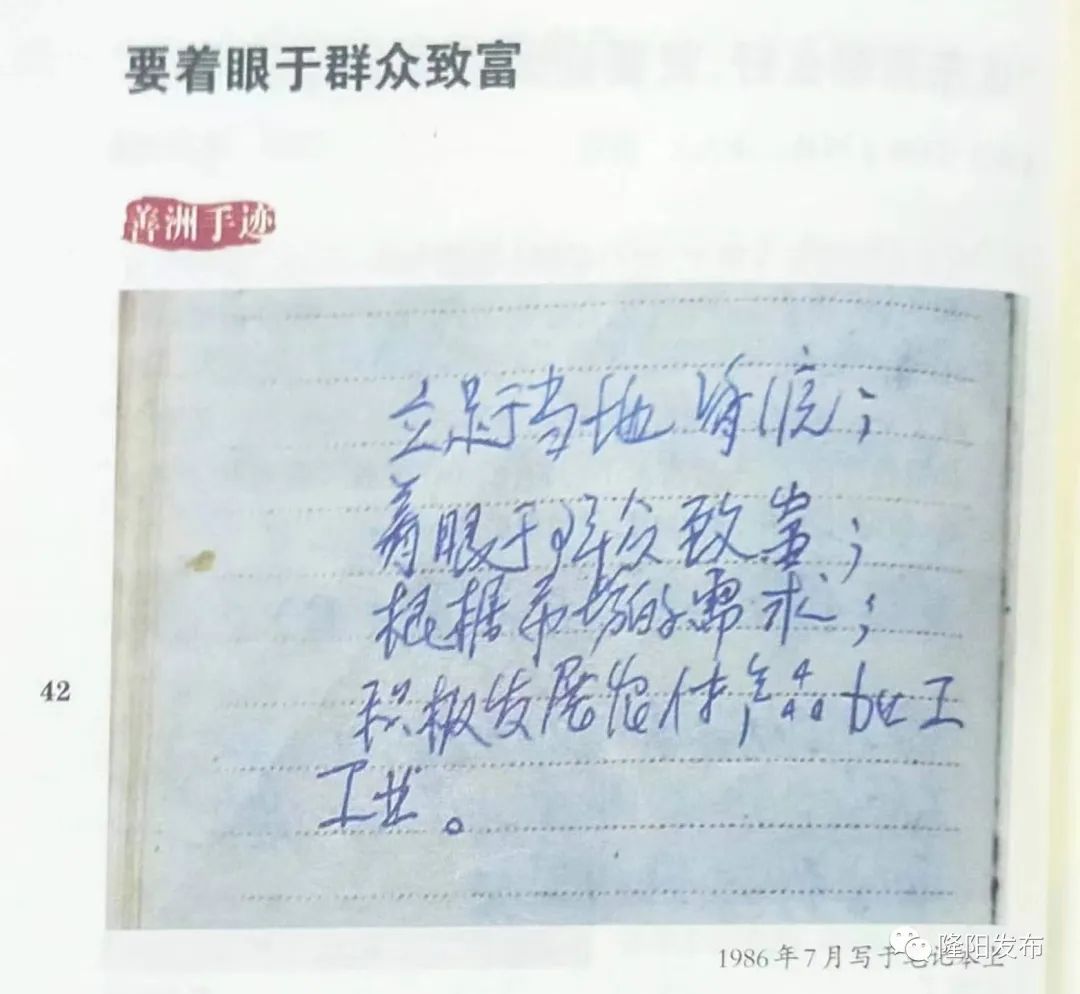 要着眼于群众致富
善洲手迹
立足于当地资源；
着眼于群众致富；
根据市场的需求；
积极发展农付产品加工
工业。
42
1986年7月写于笔记本上
隆阳发布